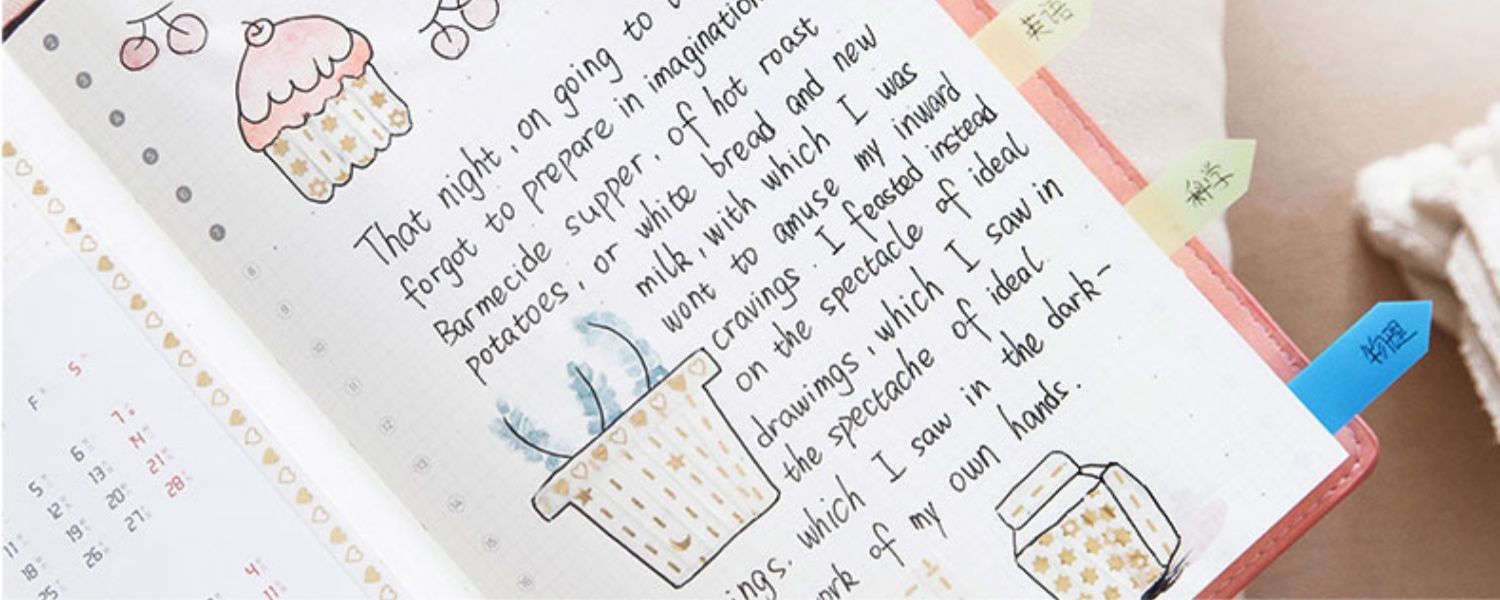 That night, on going to
forgot to prepare in imagination
Barmecide supper, of hot roast
potatoes, or white bread and new
milk, with which I was
wont to amuse my inward
cravings. I feasted instead
on the spectacle of ideal
drawimgs, which I saw in
the spectache of ideal.
ings. which I saw in the dark-
ork of my own hands.
英语
科学
物理
F S
5 6 7
11 12 13 14
18 19 20 21
25 26 27 28
4
11
8
9
10
11
12
13
14
15
16